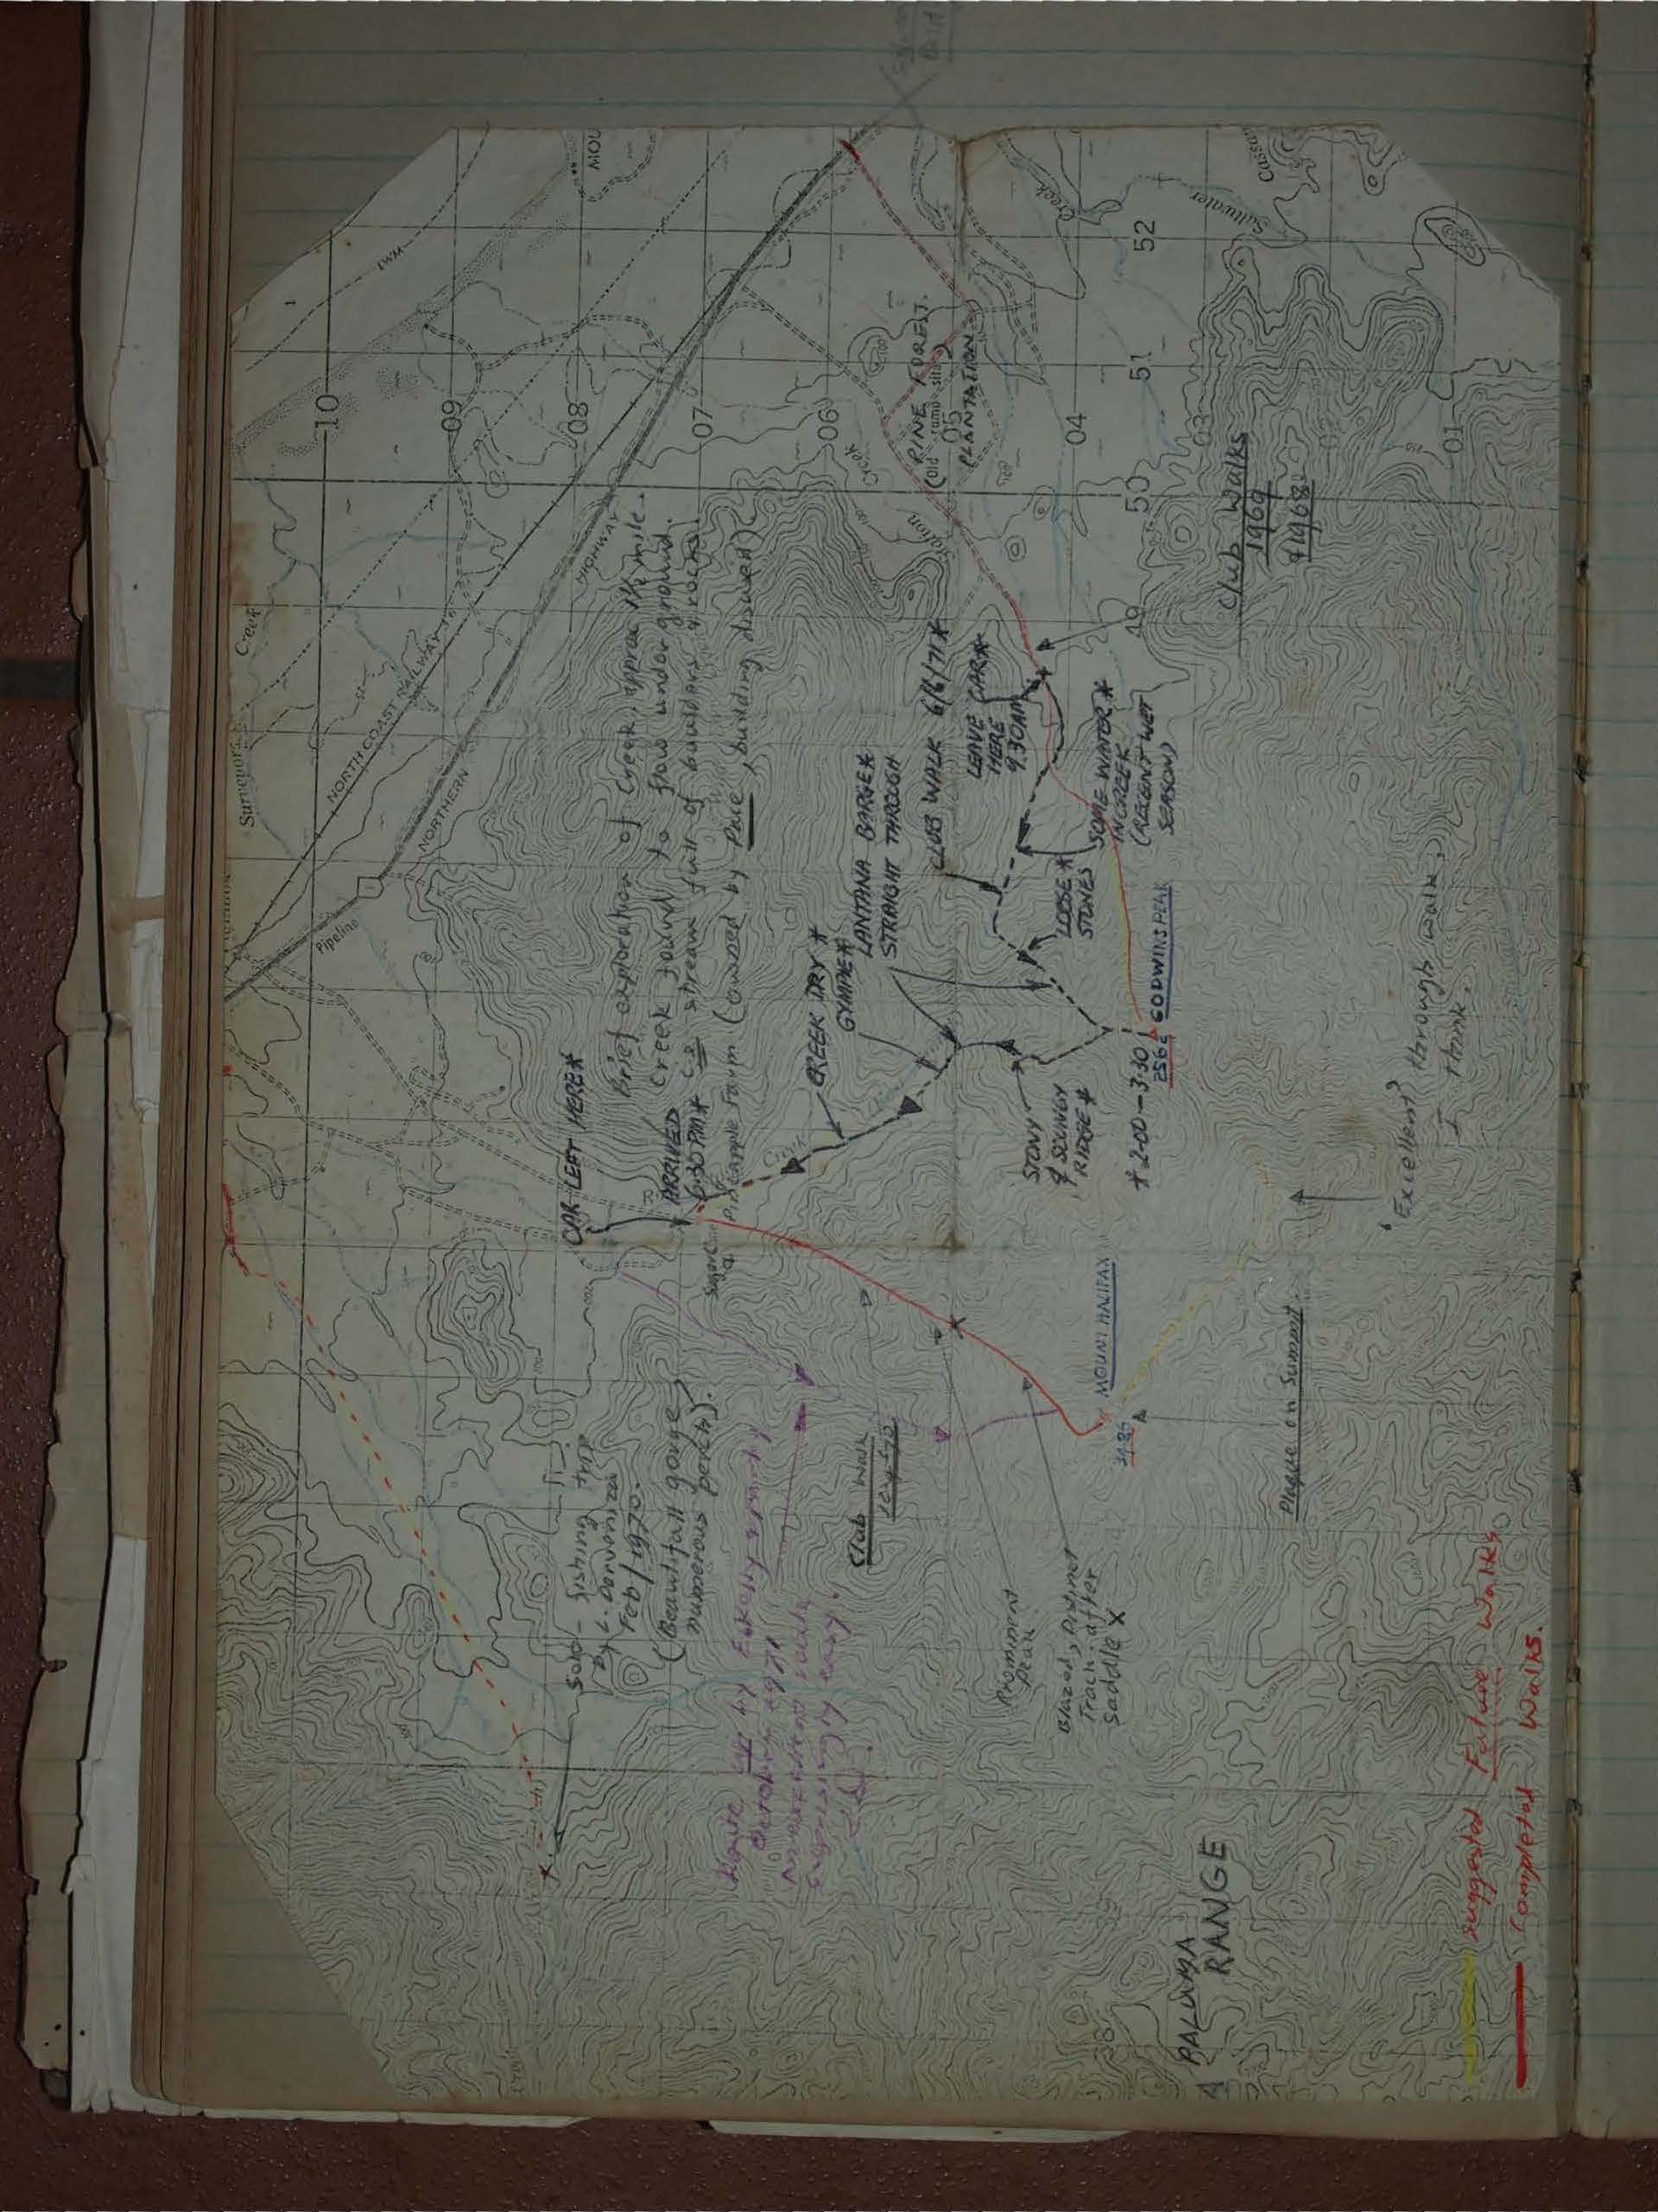 Surveyors
Creek
NORTH COAST RAILWAY
NORTHERN
HIGHWAY
Pipeline
LWM
MOU
10
09
08
07
06
05
04
03
02
01
49
50
51
52
CAR LEFT HERE*
ARRIVED
6.30 PM*
Brief exploration of Creek, approx 1½ mile.
Creek found to flow under ground.
stream full of boulders & rocks.
Pineapple farm (owned by Pace, building disused)
Sugar Cane
&
CREEK DRY*
GYMPIE*
LANTANA BARGE*
STRAIGHT THROUGH
CLUB WALK 6/6/71*
LEAVE CAR*
HERE
9.30AM
PINE FOREST.
(Old camp site)
PLANTATION
Station
Creek
Saltwater
Creek
LOOSE*
STONES
SOME WATER*
IN CREEK
(RECENT WET
SEASON)
STONY
& SCUNGY
RIDGE*
* 2.00 - 3.30
2562
GODWINS PEAK
Club Walks
1969
& 1968
MOUNT HALIFAX
3486
Plaque on Summit.
'Excellent' through walk,
I think.
Solo - fishing trip
by L. Dorvenizza
Feb / 1970.
(Beautifall gorge,
numerous perch).
Route up by Eskeny & party
October 1971
surprisingly easy.
Club Walk
Prominent
Peak
Blazed, Distinct
Track after
Saddle X
PALUMA
RANGE
Suggested Future Walks
Completed Walks.